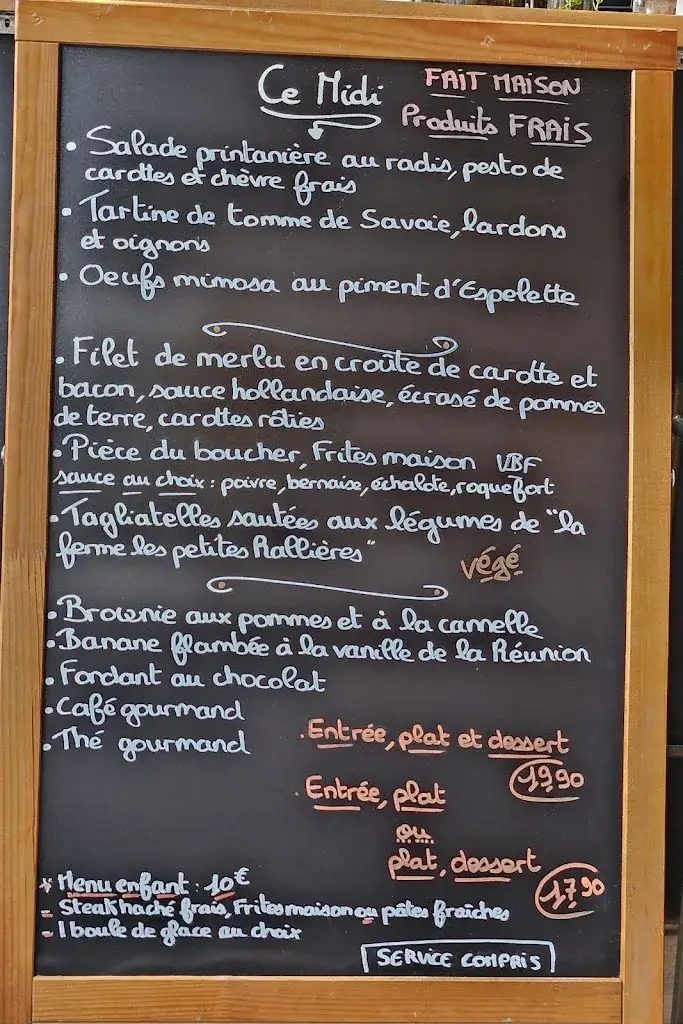 Ce Midi
FAIT MAISON
Produits FRAIS
• Salade printanière au radis, pesto de
carottes et chèvre frais
• Tartine de tomme de Savoie, lardons
et oignons
• Oeufs mimosa au piment d'Espelette
• Filet de merlu en croûte de carotte et
bacon, sauce hollandaise, écrasé de pommes
de terre, carottes rôties
• Pièce du boucher, Frites maison VBF
sauce au choix : poivre, bernaise, échalote, roquefort
• Tagliatelles sautées aux légumes de "la
ferme les petites Rallières"
végé
• Brownie aux pommes et à la cannelle
• Banane flambée à la vanille de la Réunion
• Fondant au chocolat
• Café gourmand
• Thé gourmand
• Entrée, plat et dessert
19,90
• Entrée, plat
ou
plat, dessert
17,90
* Menu enfant : 10€
- Steak haché frais, Frites maison ou pâtes fraîches
- 1 boule de glace au choix
SERVICE COMPRIS